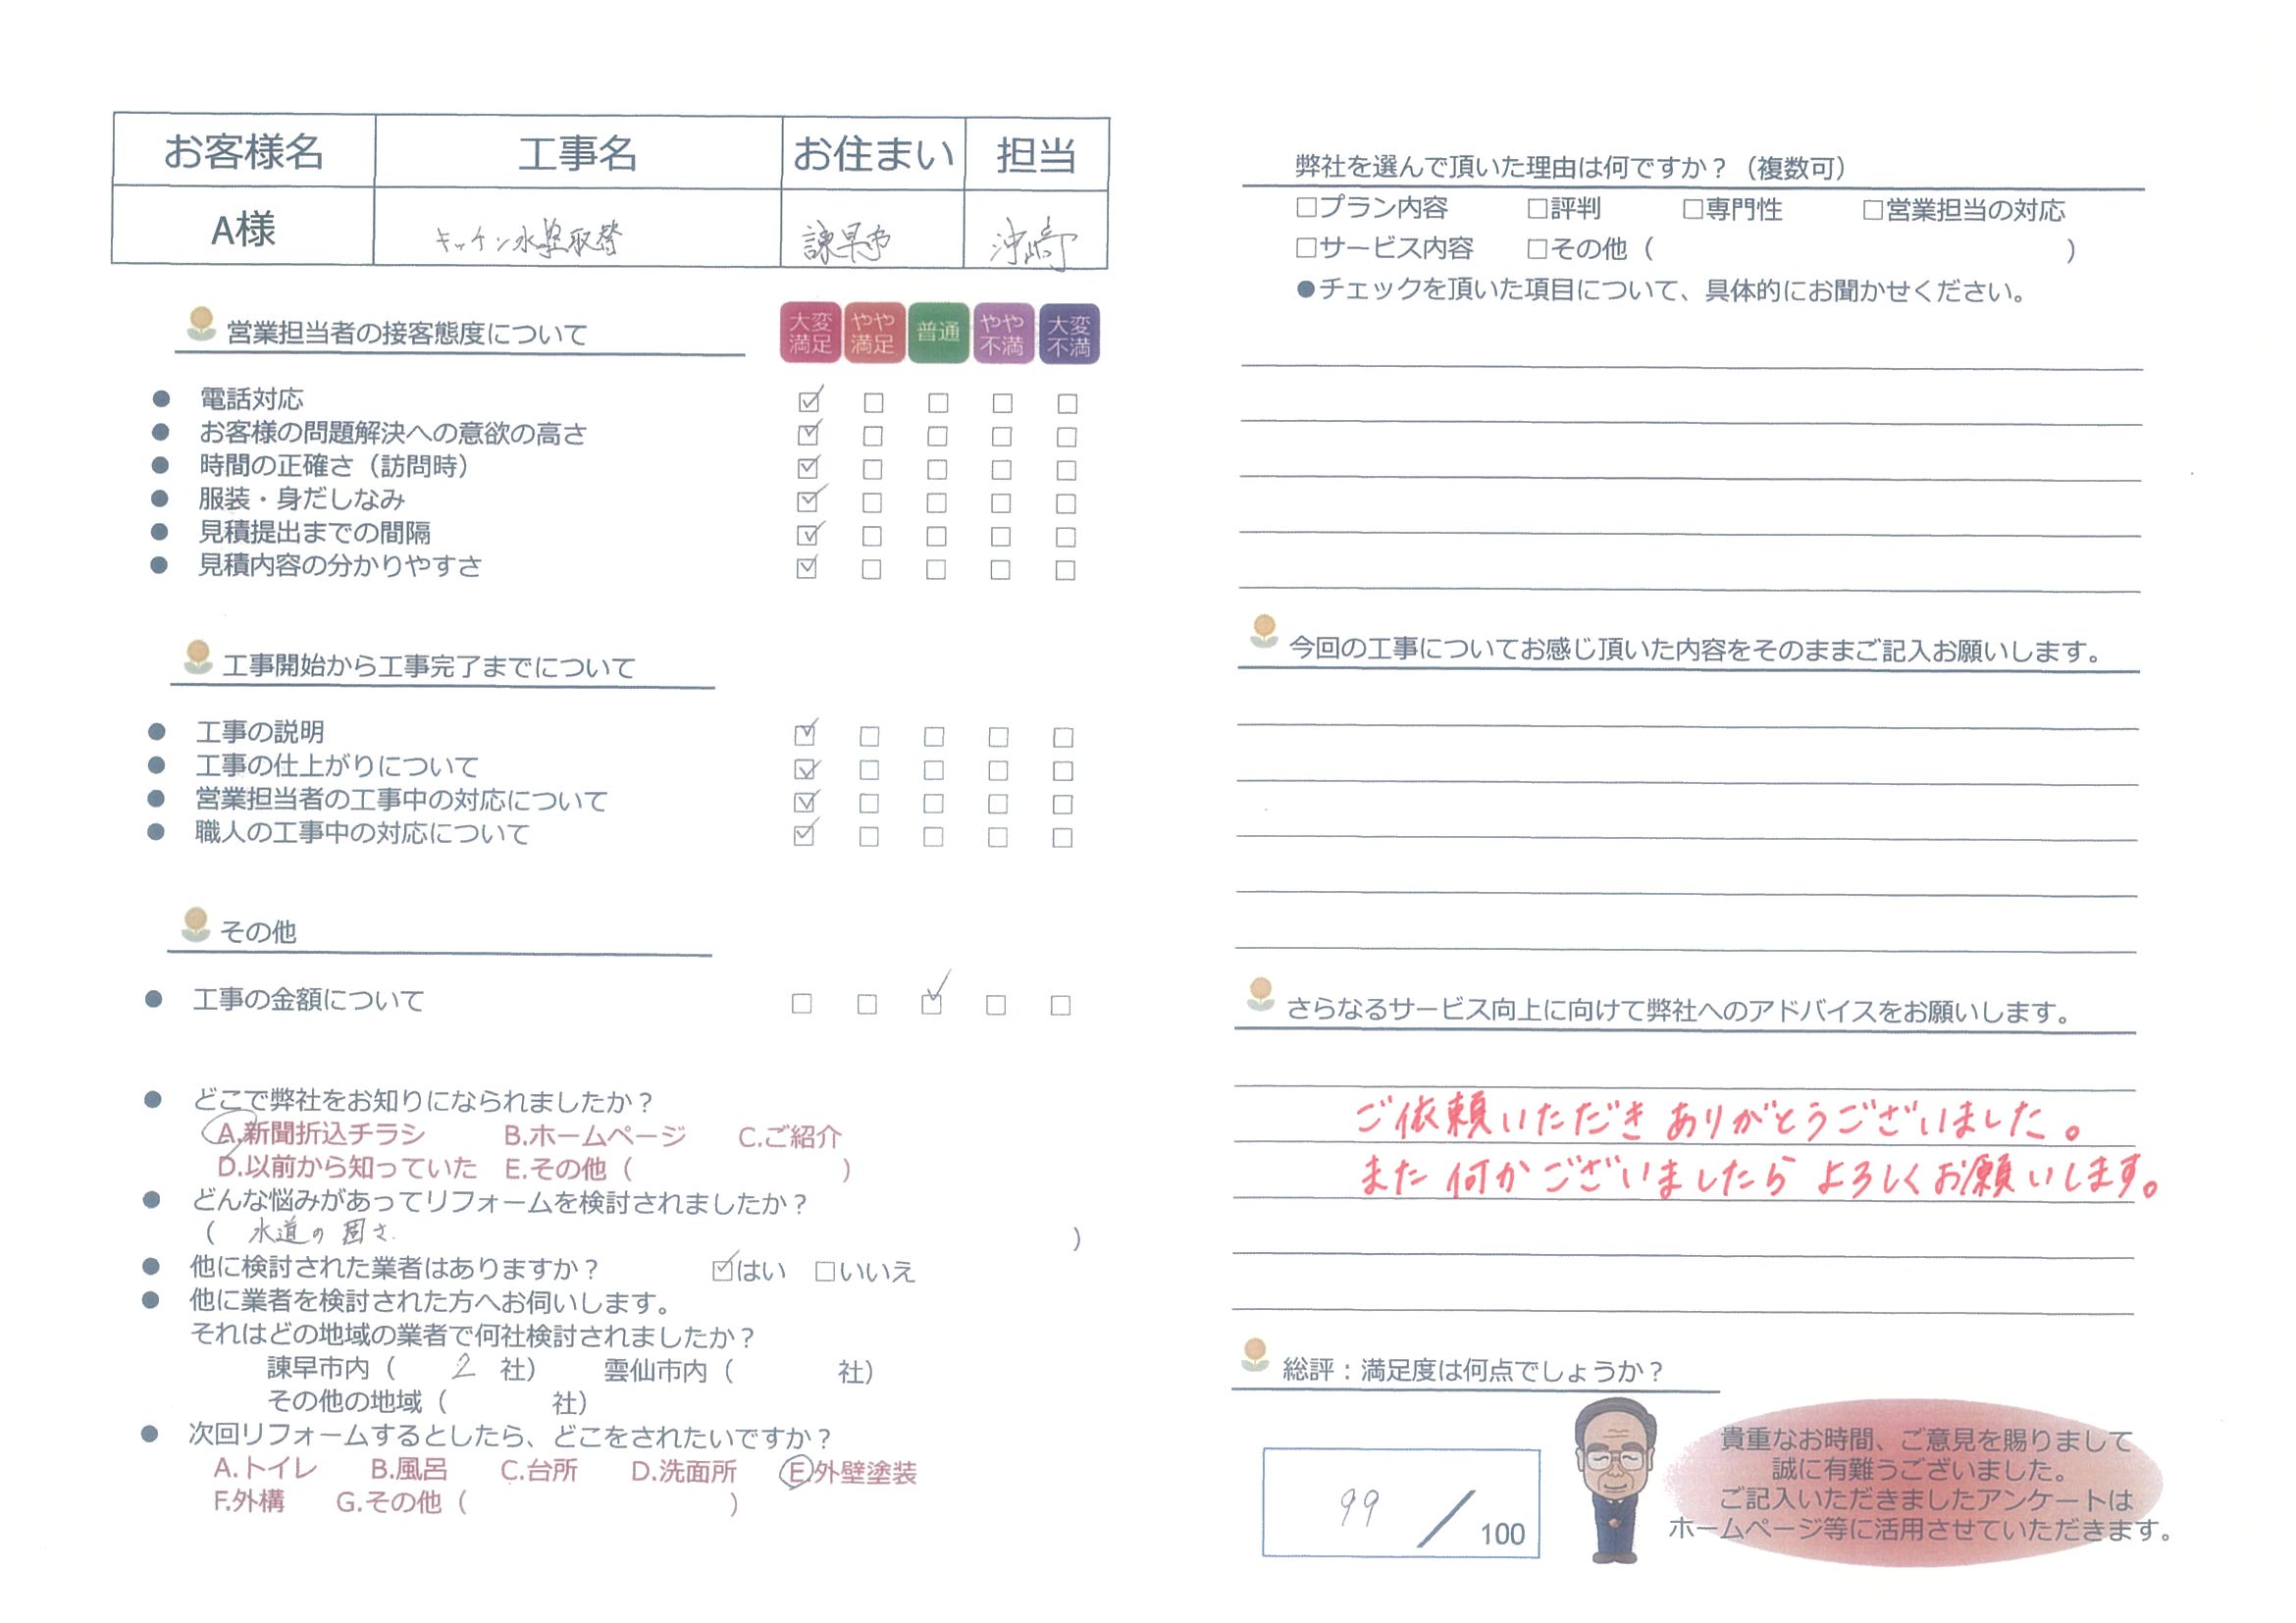 お客様名 工事名 お住まい 担当
A様 キッチン水栓取替 諫早市 沖崎
営業担当者の接客態度について 大変満足 やや満足 普通 やや不満 大変不満
● 電話対応 ☑ □ □ □ □
● お客様の問題解決への意欲の高さ ☑ □ □ □ □
● 時間の正確さ（訪問時） ☑ □ □ □ □
● 服装・身だしなみ ☑ □ □ □ □
● 見積提出までの間隔 ☑ □ □ □ □
● 見積内容の分かりやすさ ☑ □ □ □ □
工事開始から工事完了までについて
● 工事の説明 ☑ □ □ □ □
● 工事の仕上がりについて ☑ □ □ □ □
● 営業担当者の工事中の対応について ☑ □ □ □ □
● 職人の工事中の対応について ☑ □ □ □ □
その他
● 工事の金額について □ □ ☑ □ □
● どこで弊社をお知りになられましたか？
A.新聞折込チラシ B.ホームページ C.ご紹介
D.以前から知っていた E.その他（ ）
● どんな悩みがあってリフォームを検討されましたか？
（ 水道の固さ ）
● 他に検討された業者はありますか？ ☑はい □いいえ
● 他に業者を検討された方へお伺いします。
それはどの地域の業者で何社検討されましたか？
諫早市内（ 2 社） 雲仙市内（ 社）
その他の地域（ 社）
● 次回リフォームするとしたら、どこをされたいですか？
A.トイレ B.風呂 C.台所 D.洗面所 E.外壁塗装
F.外構 G.その他（ ）
弊社を選んで頂いた理由は何ですか？（複数可）
□プラン内容 □評判 □専門性 □営業担当の対応
□サービス内容 □その他（ ）
●チェックを頂いた項目について、具体的にお聞かせください。
今回の工事についてお感じ頂いた内容をそのままご記入お願いします。
さらなるサービス向上に向けて弊社へのアドバイスをお願いします。
ご依頼いただきありがとうございました。
また何かございましたらよろしくお願いします。
総評：満足度は何点でしょうか？
99 / 100
貴重なお時間、ご意見を賜りまして
誠に有難うございました。
ご記入いただきましたアンケートは
ホームページ等に活用させていただきます。